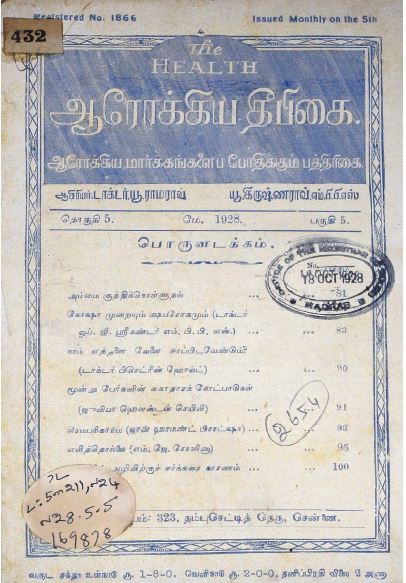 Registered No. 1866
Issued Monthly on the 5th
432
The
HEALTH
ஆரோக்கிய தீபிகை.
ஆரோக்கிய மார்க்கங்களைப் போதிக்கும் பத்திரிகை.
ஆசிரியர். டாக்டர் யூ. ராமராவ்
யூ. கிருஷ்ணராவ். எம்.பி.பி.எஸ்
தொகுதி 5.
மே, 1928.
பகுதி 5.
பொருளடக்கம்.
அம்மை குத்திக்கொள்ளுதல் ... ... 81
கோஷா முறையும் க்ஷயரோகமும் (டாக்டர்
ஒய். ஜி. ஸ்ரீகண்டர் எம். பி. பி, எஸ்.) ... ... 83
நாம் எத்தனை வேளை சாப்பிடவேண்டும்?
(டாக்டர் பிசெட்ரின் ஹோஸ்ட்) ... ... 90
மூன்று பேர்களின் சுகாதாரக் கோட்பாடுகள்
(ஜூலியா ஹெண்டன் செயிலி) ... ... 91
(ஜான் ஹாமண்ட் பிராட்ஷா) ... ... 93
எலித்தொல்லை (எம். ஜே. சோலிஞு) ... ... 95
அழிவிற்குச் சர்க்கரை காரணம் ... 100
OFFICE OF THE REGISTRAR
No.
18 OCT 1928
MADRAS
65.4
L:5m211,N24
N28.5.5
169878
323, தம்புசெட்டித் தெரு, சென்னை.
வருட சந்தா உள்நாடு ரூ. 1-8-0. வெளிநாடு ரூ. 2-0-0. தனிப்பிரதி விலை 2 அணா